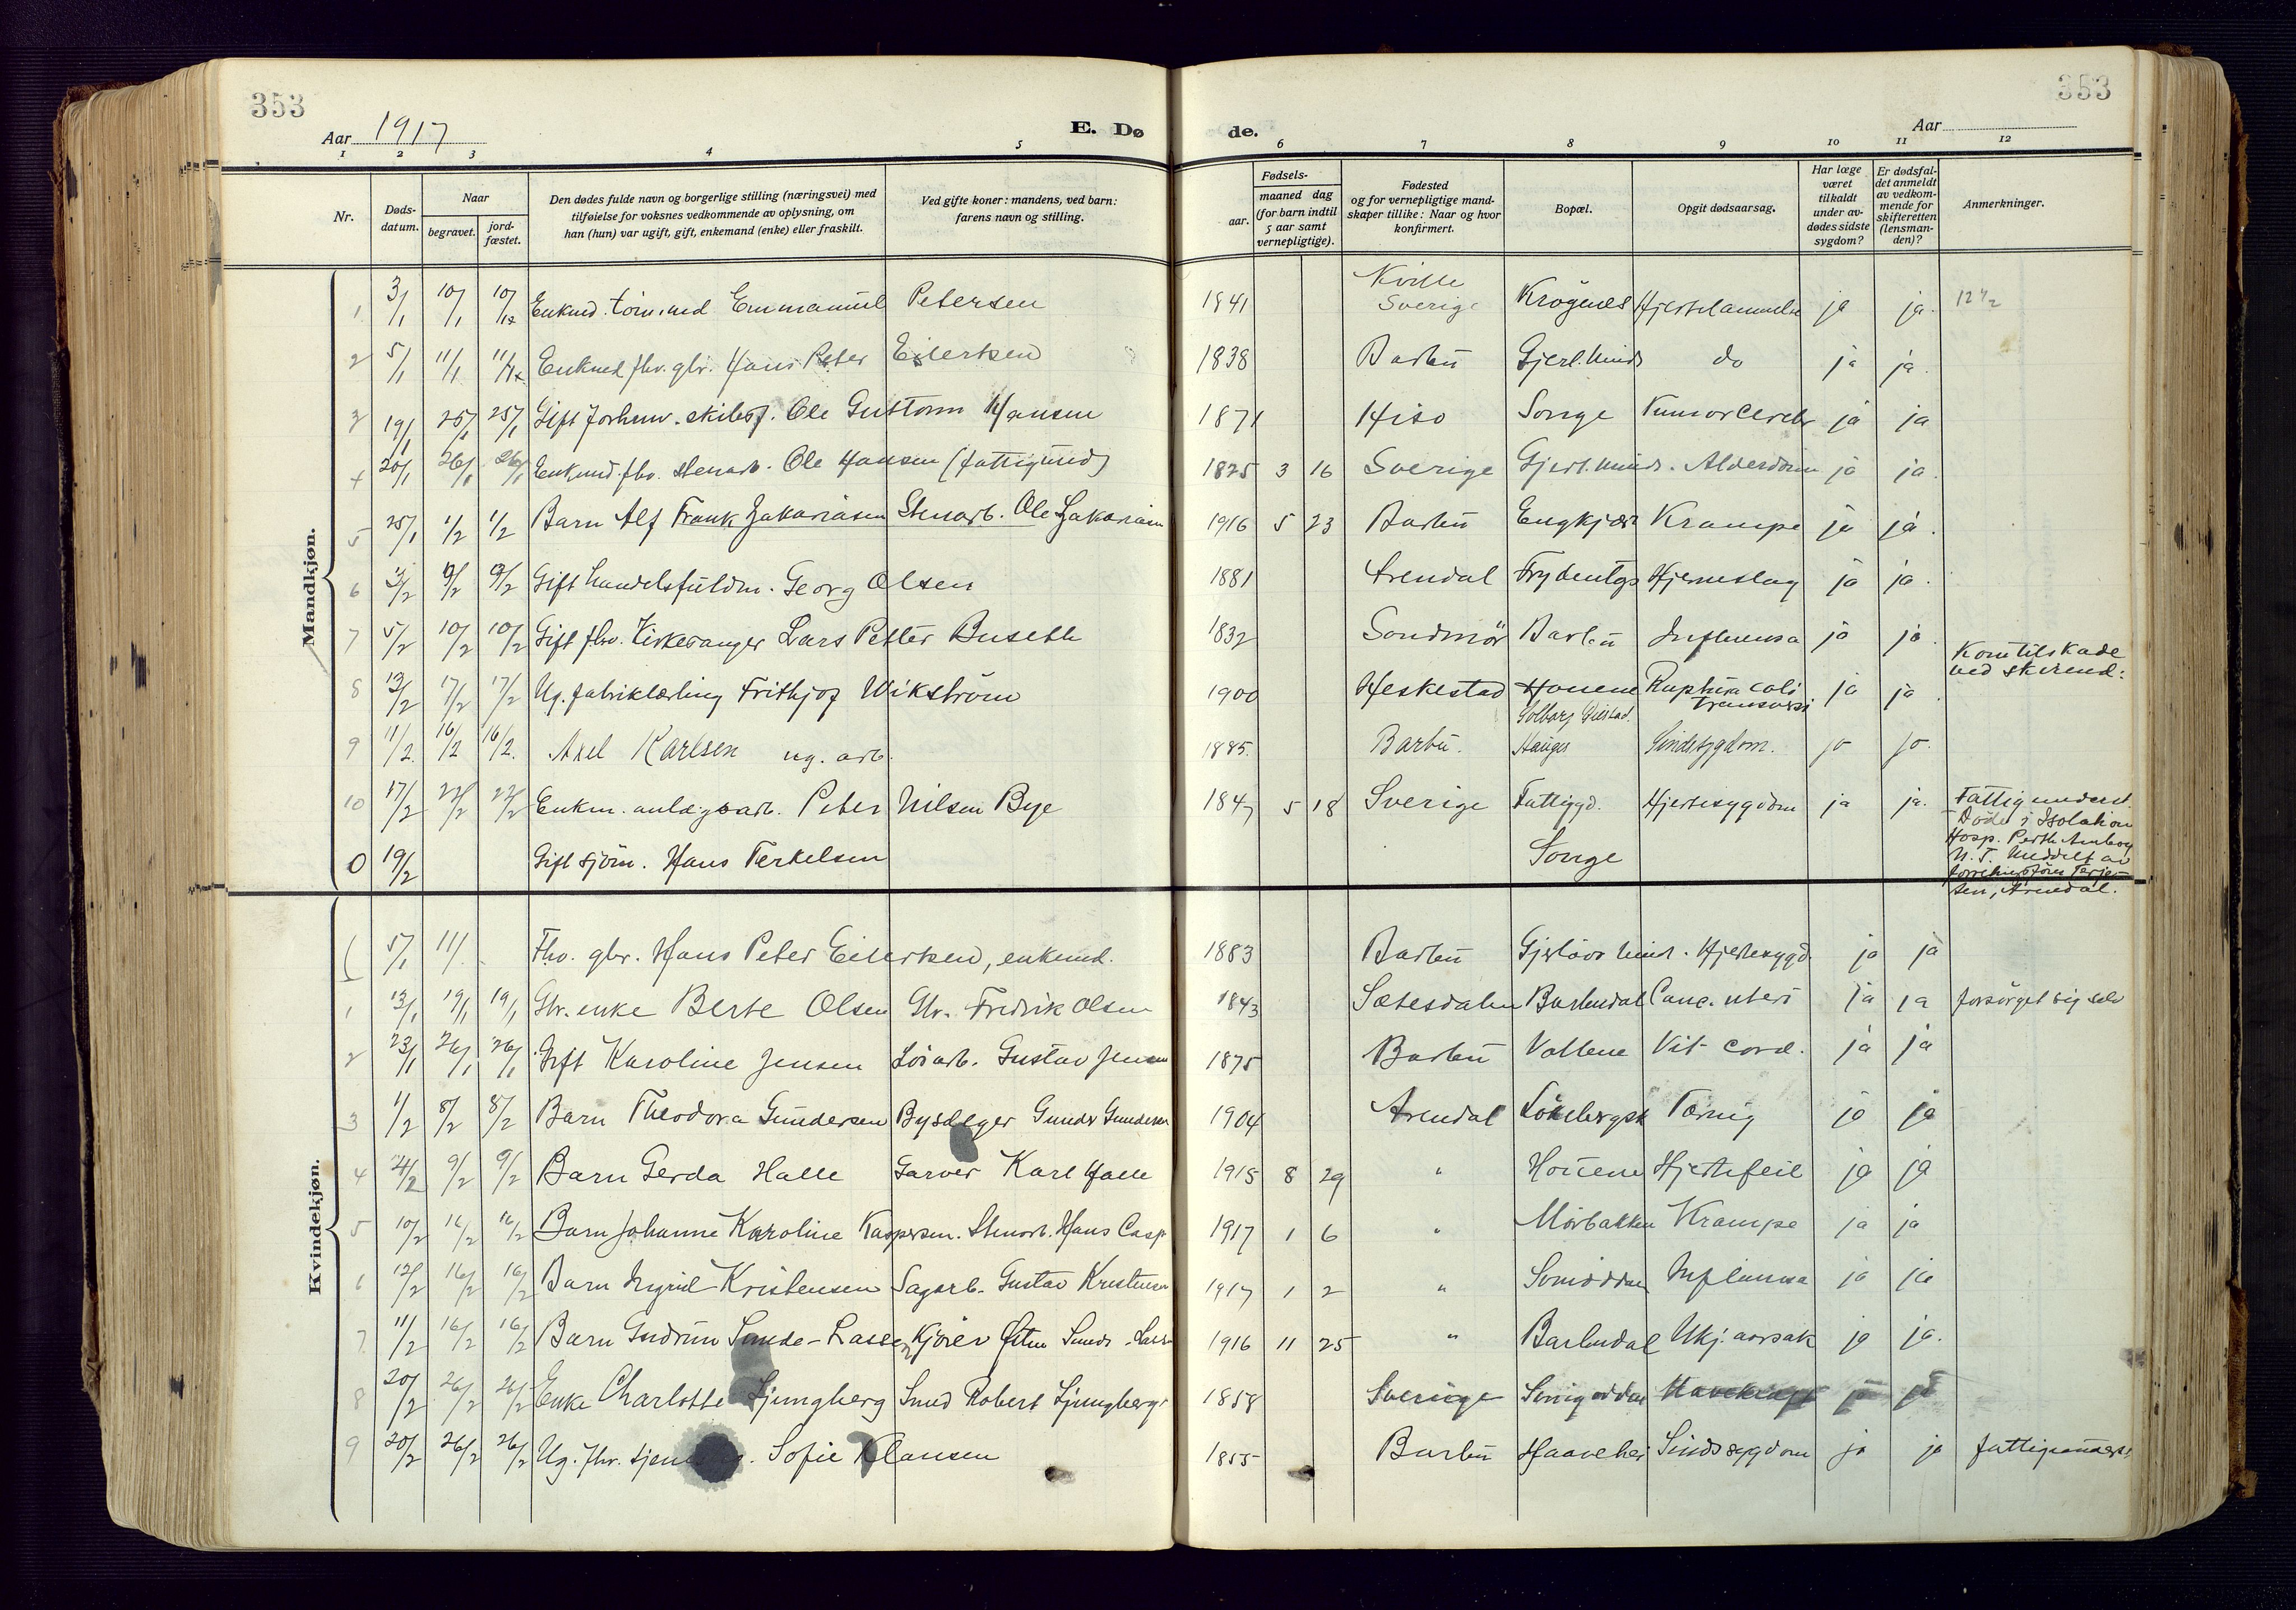 353
353
Aar 1917
E. Dø
de.
Aar
1 2 3 4 5 6 7 8 9 10 11 12
Nr.
Døds-
datum.
Naar
begravet.
jord-
fæstet.
Den dødes fulde navn og borgerlige stilling (næringsvei) med
tilføielse for voksnes vedkommende av oplysning, om
han (hun) var ugift, gift, enkemand (enke) eller fraskilt.
Ved gifte koner: mandens, ved barn:
farens navn og stilling.
Fødsels-
aar.
maaned dag
(for barn indtil
5 aar samt
vernepligtige).
Fødested
og for vernepligtige mand-
skaper tillike: Naar og hvor
konfirmert.
Bopæl.
Opgit dødsaarsag.
Har læge
været
tilkaldt
under av-
dødes sidste
sygdom?
Er dødsfal-
det anmeldt
av vedkom-
mende for
skifteretten
(lensman-
den)?
Anmerkninger.
Mandkjøn.
1 3/1 10/1 10/1 Enkmd. tømmd Emmanuel Petersen 1841 Kville Sverige Krøgenes Hjertelammelse ja ja. 12 1/2
2 5/1 11/1 11/1 Enkmd fhv. gbr. Hans Peter Eilertsen 1838 Barbu Gjerl.minds do ja ja.
3 19/1 25/1 25/1 Gift forhenv. skibsf. Ole Guttorm Hansen 1871 Hisø Songe Tumor Cerebr ja ja
4 20/1 26/1 26/1 Enkmd. fhv. stenarb. Ole Hansen (fattigund) 1825 3 16 Sverige Gjerl. minds. Alderdom ja ja.
5 25/1 1/2 1/2 Barn Alf Frank Zakariasen Stenarb. Ole Zakariasen 1916 5 23 Barbu Engkjær Krampe ja ja.
6 3/2 9/2 9/2 Gift handelsfuldm. Georg Olsen 1881 Arendal Frydentgs Hjerneslag ja ja.
7 5/2 10/2 10/2 Gift fhv. Kirkesanger Lars Petter Buseth 1832 Søndmør Barbu Influensa ja ja.
8 13/2 17/2 17/2 Ug. fabriklærling Frithjof Wikstrøm 1900 Heskestad Houene Ruptura coli transversi ja ja Kom til skade
ved skirend:
9 11/2. 16/2 16/2. Axel Karlsen ug. arb. 1885. Barbu. Solborg Hauges Sindssygdom. ja ja.
10 17/2 22/2 22/2 Enkm. anlægsarb. Peter Nilsen Bye 1847 5 18 Sverige Fattiggd. Hjertesygdom ja ja. Fattigunderst.
0 19/2 Gift sjøm. Hans Terkelsen Songe Døde i Isolation
Hosp. Perth Amboy
N. J. Meddelt av
Terje-
sen, Arendal.
Kvindekjøn.
( 5/1 11/ Fhv. gbr. Hans Peter Eilertsen, enkemd. 1883 Barbu Gjerløvs mind. Hjertesygd. ja ja
1 13/1 19/1 19/1 Gbr. enke Berte Olsen Gbr. Fredrik Olsen 1843 Sætesdalen Barbudal Canc. uteri ja ja forsørget sig selv
2 23/1 26/1 26/1 Gift Karoline Jensen Løsarb. Gustav Jensen 1875 Barbu Vollene Vit. cord. ja ja
3 1/2 8/2 8/2 Barn Theodora Gundersen Bysælger Gunder Gundersen 1904 Arendal Løkebergsk Tæring ja ja
4 4/2 9/2 9/2 Barn Gerda Halle Garver Karl Halle 1915 8 29 " Houene Hjertefeil ja ja
5 10/2 16/2 16/2 Barn Johanne Karoline Kaspersen. Stenarb. Hans Casp 1917 1 6 " Mørbakken Krampe ja ja
6 12/2 16/2 16/2 Barn Ingrid Kristensen Sagarb. Gustav Kristensen 1917 1 2 " Influensa ja ja
7 11/2 16/2 16/2 Barn Gudrun Sunde-Lassen Kjører Sunde-Lassen 1916 11 25 " Barbudal Ukj. aarsak ja ja.
8 20/2 26/2 26/2 Enke Charlotte Ljungberg Smed Robert Ljungberg 1858 Sverige Mavekræft ja ja
9 20/2 26/2 26/2 Ug. fhv. Sofie Klausen 1855 Barbu Haavehei Sindssygdom ja ja fattigunderst